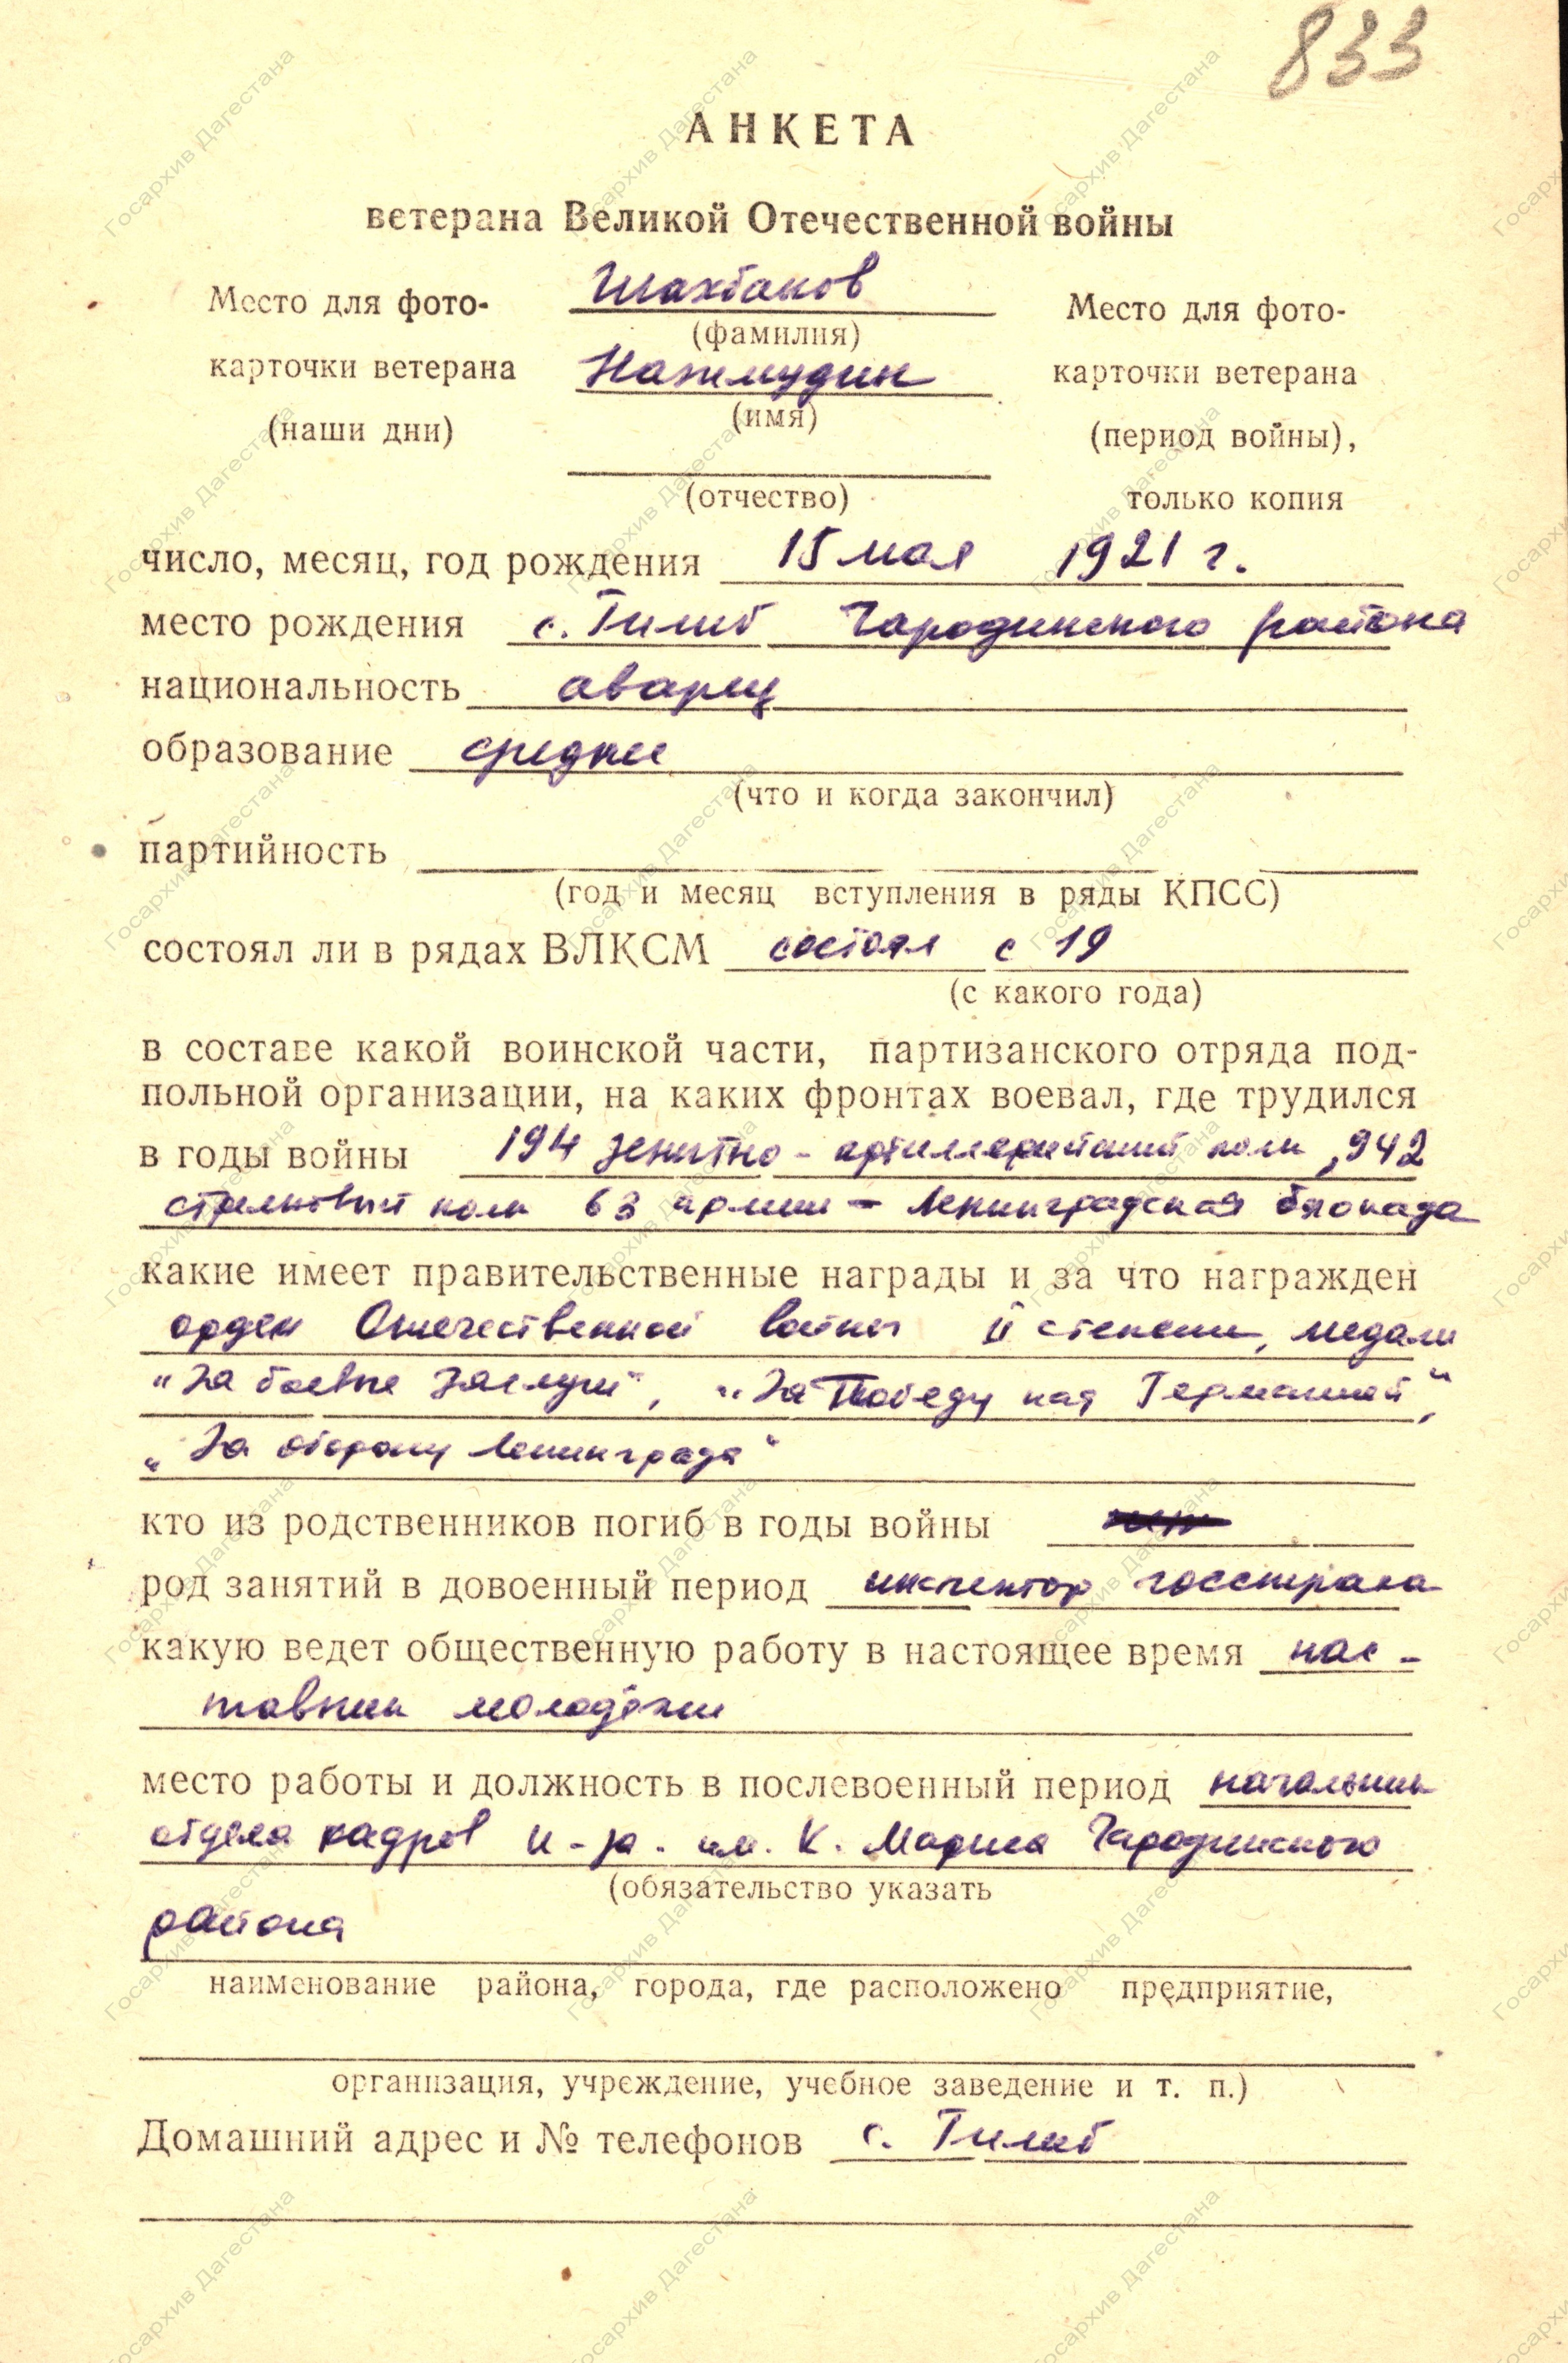 833
АНКЕТА
ветерана Великой Отечественной войны
Место для фото-
карточки ветерана
(наши дни)
Шахбанов
(фамилия)
Нажмудин
(имя)
(отчество)
Место для фото-
карточки ветерана
(период войны),
только копия
число, месяц, год рождения 15 мая 1921 г.
место рождения с. Гилиб Чародинского района
национальность аварец
образование среднее
(что и когда закончил)
партийность
(год и месяц вступления в ряды КПСС)
состоял ли в рядах ВЛКСМ состоял с 19
(с какого года)
в составе какой воинской части, партизанского отряда под-
польной организации, на каких фронтах воевал, где трудился
в годы войны 194 зенитно-артиллерийский полк, 942
стрелковый полк 63 армии - Ленинградская блокада
какие имеет правительственные награды и за что награжден
орден Отечественной войны II степени, медали
"За боевые заслуги", "За Победу над Германией",
"За оборону Ленинграда"
кто из родственников погиб в годы войны
род занятий в довоенный период инспектор госстраха
какую ведет общественную работу в настоящее время нас-
тавник молодёжи
место работы и должность в послевоенный период начальник
отдела кадров к-за. им. К. Маркса Чародинского
(обязательство указать
района
наименование района, города, где расположено предприятие,
организация, учреждение, учебное заведение и т. п.)
Домашний адрес и № телефонов с. Гилиб
Госархив Дагестана